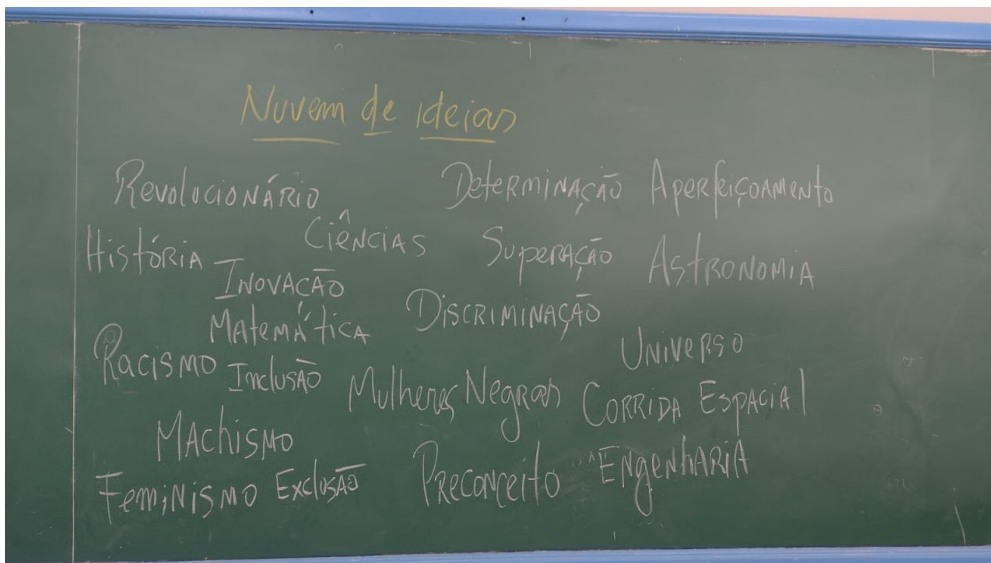 Nuvem de ideias
Revolucionário Determinação Aperfeiçoamento
História Ciências Superação Astronomia
Inovação
Matemática Discriminação
Racismo Inclusão Universo
Mulheres Negras Corrida Espacial
Machismo
Feminismo Exclusão Preconceito Engenharia